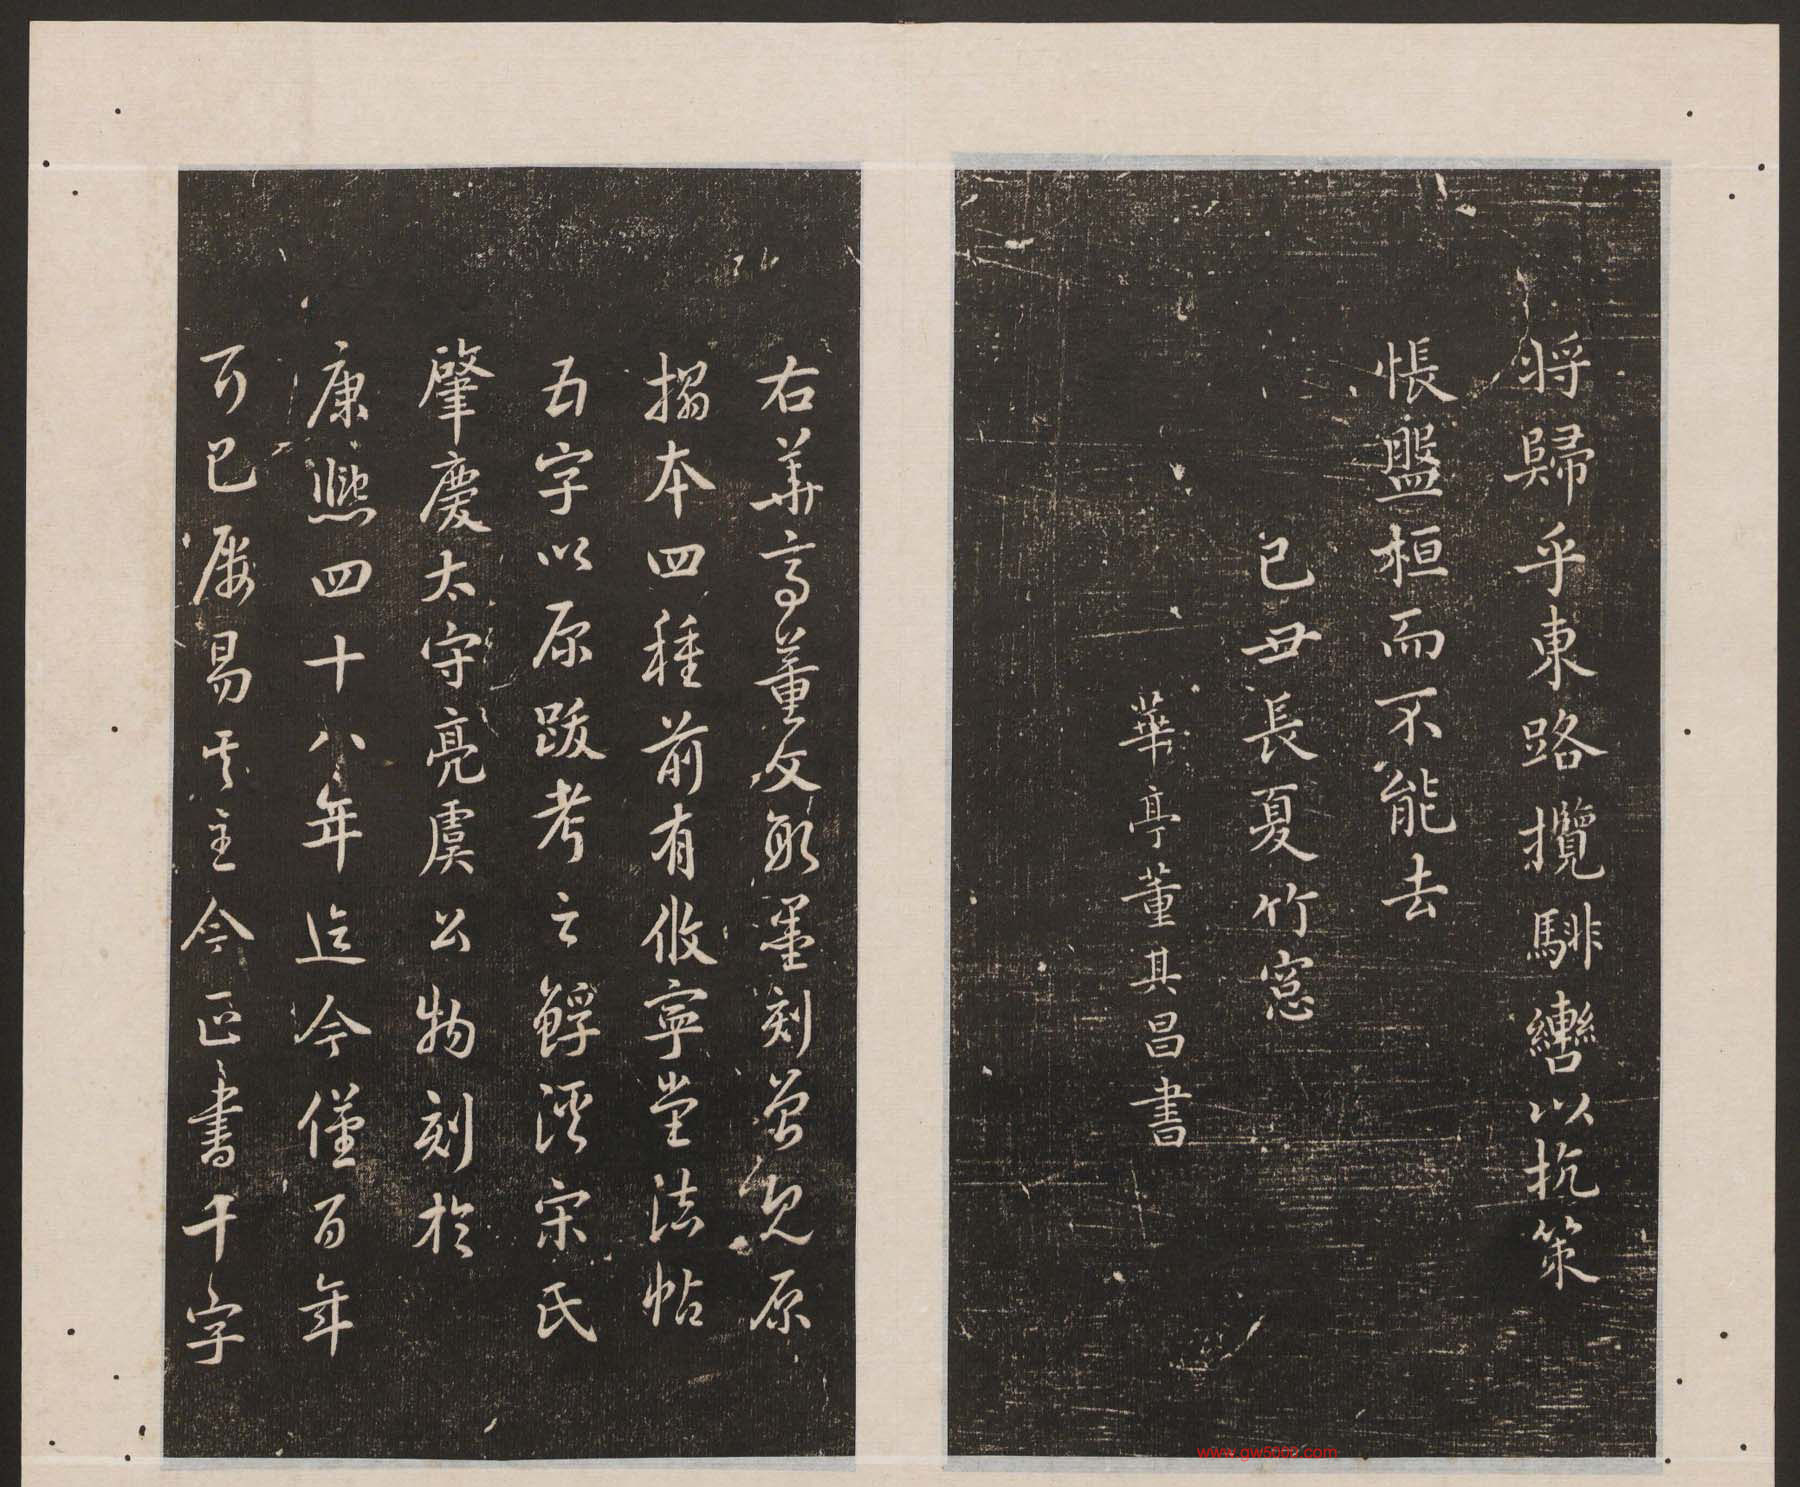 將歸乎東路攬騑轡以抗策
悵盤桓而不能去
己丑長夏竹窓
華亭董其昌書
右華亭董文敏墨刻
搨本四種前有儆寧堂法帖
五字以原跋考之
宋氏
肇慶太守亮虞公物刻於
康熙四十八年迄今僅百年
主今正書千字
www.gw5000.com